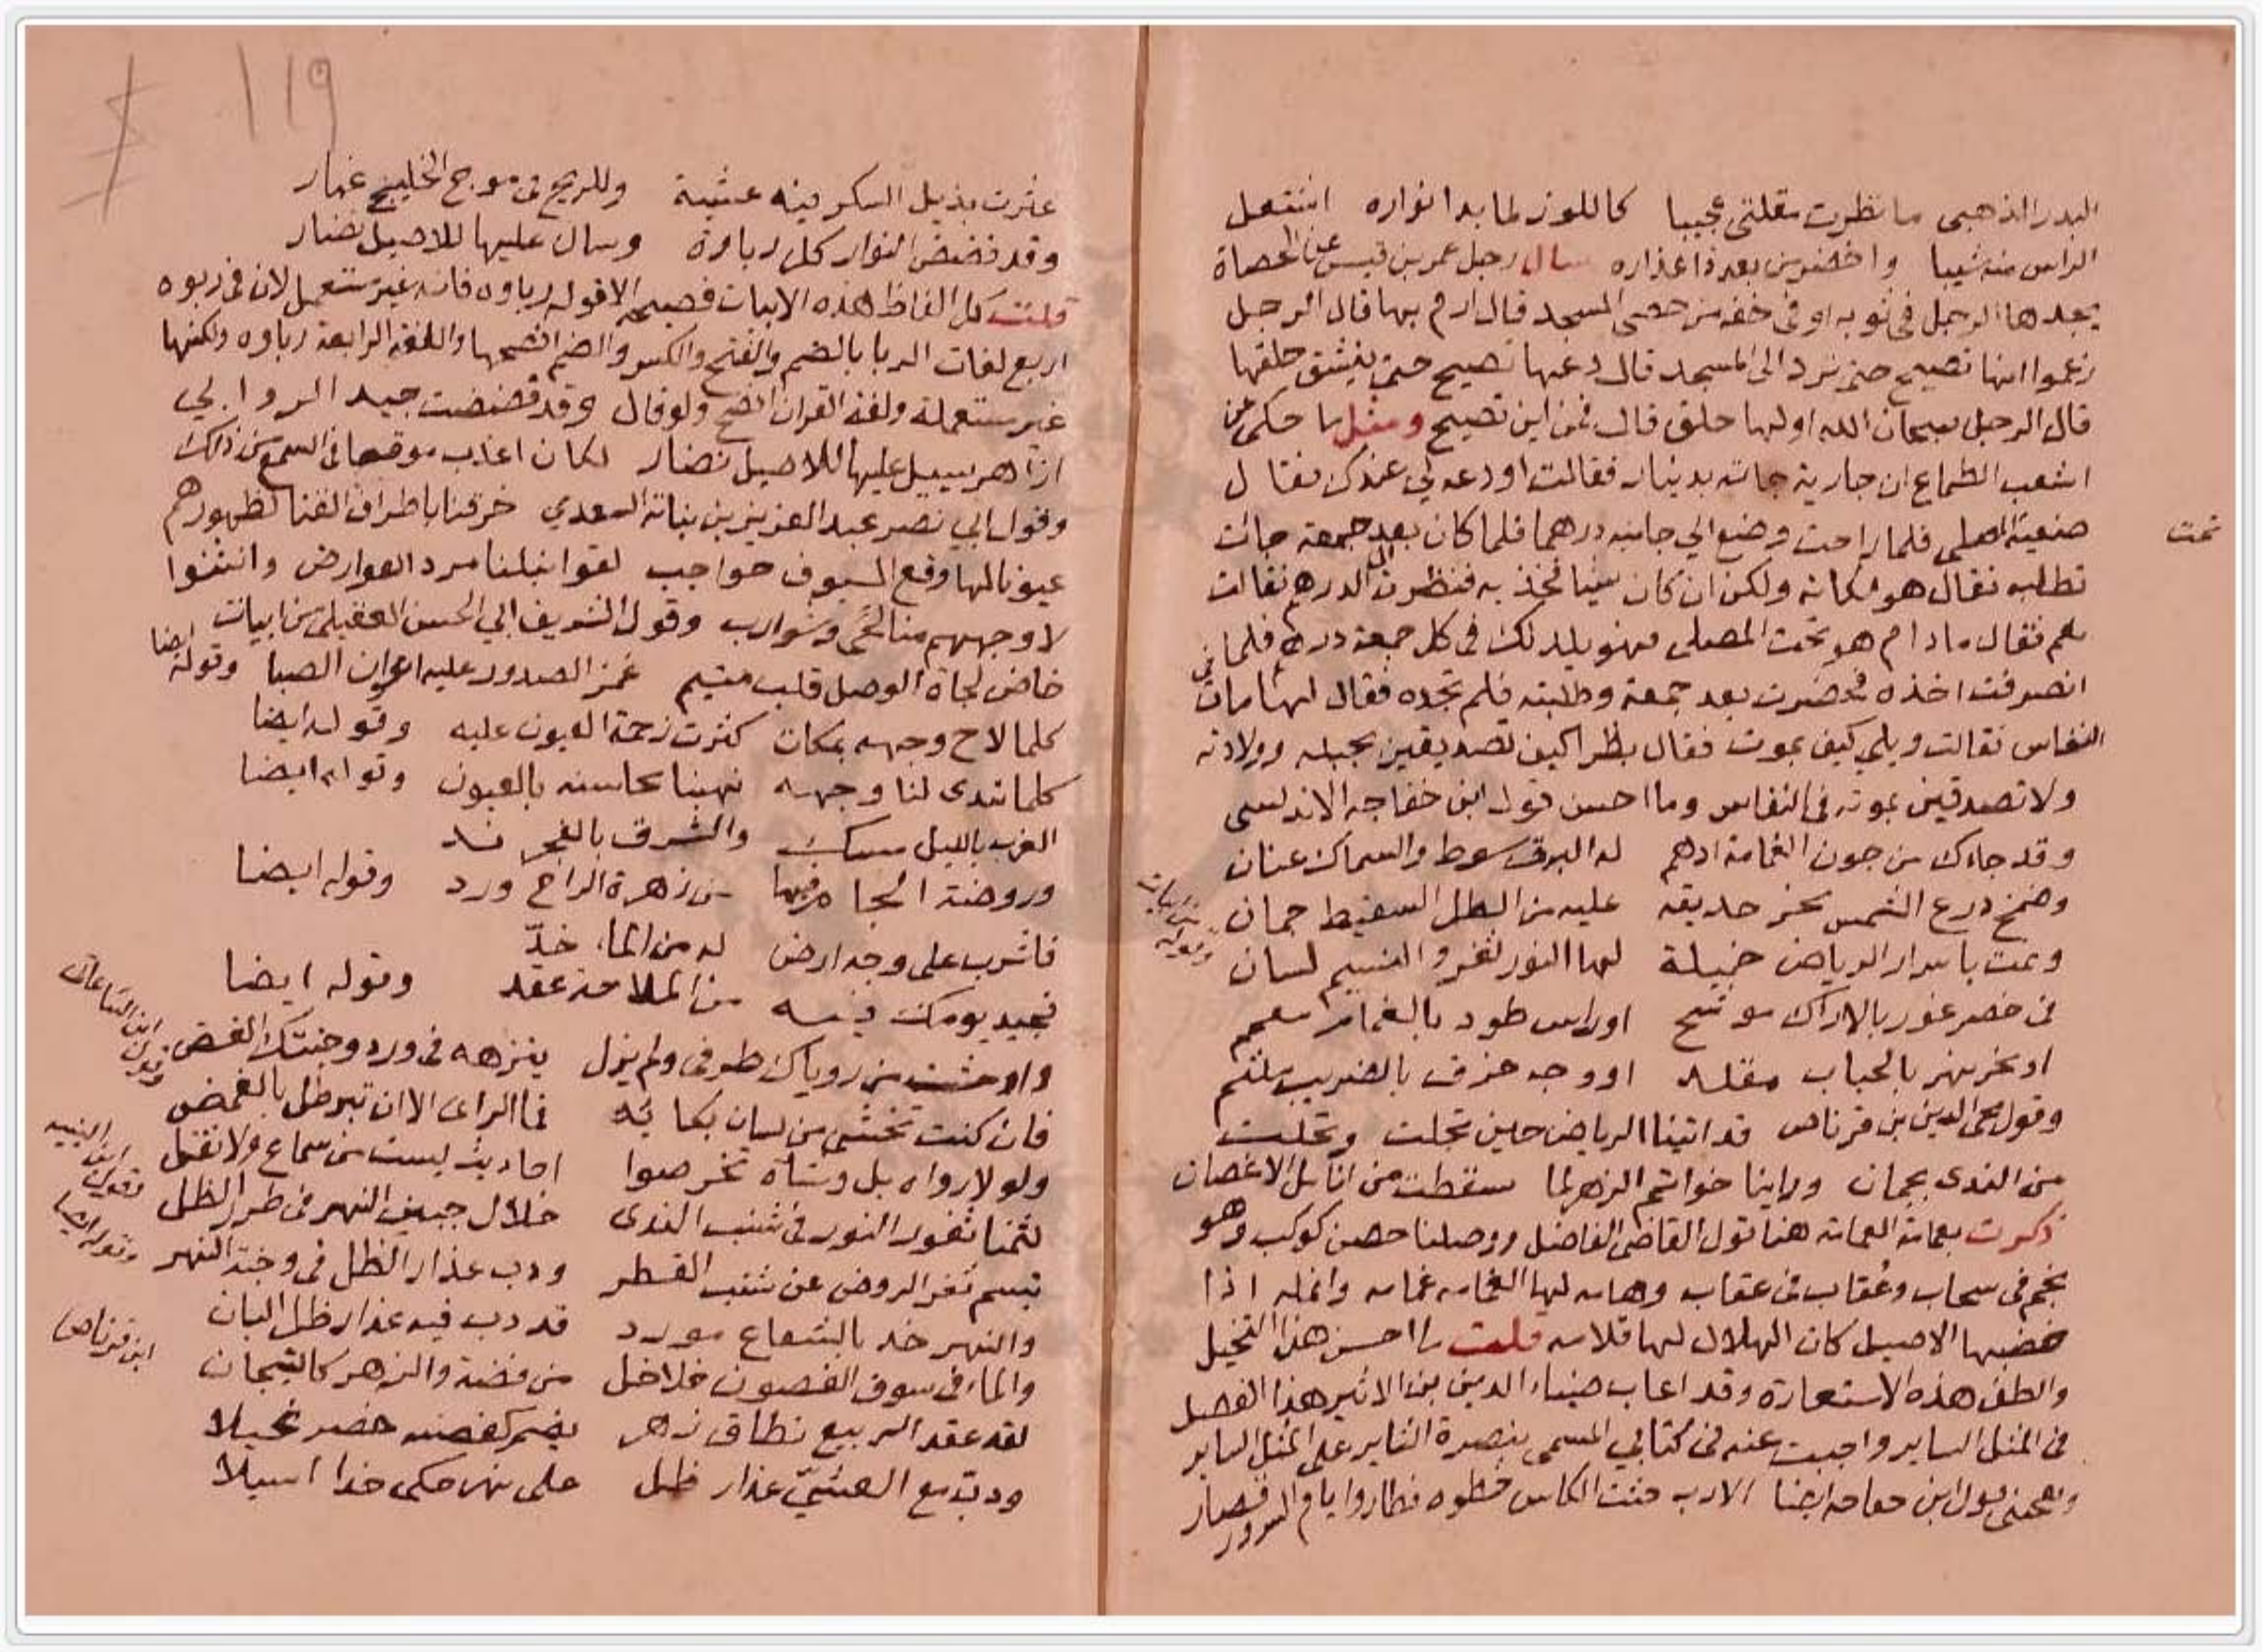 البدر الذهبي ما نظرت مقلتي عجيبا كاللوز لما بدا نواره اشتعل
الراس منه شيبا واخضر من بعد ذا عذاره سال رجل عمر بن قيس عن الحصاة
يجدها الرجل في ثوبه او في خفه من حصى المسجد قال ارم بها قال الرجل
زعموا انها تصيح حتى ترد الى المسجد قال دعها تصيح حتى ينشق حلقها
قال الرجل سبحان الله اولها حلق قال فمن اين تصيح ومثل ما حكي عن
اشعب الطماع ان جارية جاته بدينار فقالت اودعه لي عندك فقال
ضعيه المصلى فلما راحت وضع الي جانبه درهما فلما كان بعد جمعة جات
تحت
تطلبه فقال هو مكانه ولكن ان كان شيئا فخذيه فنظرت الى الدرهم فقالت
نعم فقال مادام هو تحت المصلى فهو يلد لك في كل جمعة درهم فلما
انصرفت اخذه فحضرت بعد جمعة وطلبته فلم تجده فقال لها مات في
النفاس فقالت ويلي كيف يموت فقال بظرا كيف تصديقين بحبله وولادته
ولا تصدقين بموته في النفاس وما احسن قول ابن خفاجه الاندلسي
وقد جاءك من جون الغمامة ادهم له البرق سوط والسماك عنان
وضمخ درع الشمس نحر حديقه عليه من الطل السقيط جمان
ونمت باسرار الرياض خميلة لها النور ثغر والنسيم لسان
وقوله من ابيات
في خصر غور بالاراك موشح او راس طود بالغمام معمم
او نحر نهر بالحباب مقلد او وجه خرق بالضريب ملثم
وقول محي الدين بن قرناص قد اتينا الرياض حين تجلت وتحلت
من الندى بجمان وراينا خواتم الزهر لما سقطت من انامل الاغصان
ذكرت بعمامة الغمامة هنا قول القاضي الفاضل ووصلنا حصن كوكب وهو
نجم في سحاب وعُقاب في عقاب وهامه لها الغمامه عمامه وانمله اذا
خضبها الاصيل كان الهلال لها قلامه قلت ما احسن هذا التخيل
والطف هذه الاستعارة وقد اعاب ضياء الدين بن الاثير هذا الفصل
في المثل الساير واجبت عنه في كتابي المسمى بنصرة الثاير على المثل الساير
ويعجبني قول ابن خفاجه ايضا الارب حثت الكاس خطوه فطاروا ايام السرور قصار
١١٩
عثرت بذيل السكر فيه عشية وللريح في موج الخليج عثار
وقد فضض النوار كل رباوة وسال عليها للاصيل نضار
قلت كل الفاظ هذه الابيات فصيحه الا قوله رباوه فانه غير مستعمل لان في ربوه
اربع لغات الربا بالضم والفتح والكسر والضم افصحها واللغة الرابعة رباوه ولكنها
غير مستعملة ولغة القران افصح ولو قال وقد فضضت جيد الروابي
ازاهر يسيل عليها للاصيل نضار لكان اعذب موقعا في السمع من ذلك
وقول ابي نصر عبد العزيز بن نباتة السعدي خرقنا باطراف القنا لظهورهم
عيونا لها وقع السيوف حواجب لقوا نبلنا مرد العوارض وانثنوا
لاوجههم منا لحى وشوارب وقول الشريف ابي الحسن العقيلي من ابيات
خاض لجاة الوصل قلب متيم غمز الصدود عليه اعوان الصبا وقوله ايضا
كلما لاح وجهه بمكان كثرت زحمة العيون عليه وقوله ايضا
كلما تبدى لنا وجهه نهبنا محاسنه بالعيون وقوله ايضا
الغرب بالليل مسك والشرق بالفجر ند
وروضة الجام فيها من زهرة الراح ورد وقوله ايضا
فاشرب على وجه ارض له من الماء خدّ
فجيد يومك فيه من الملاحة عقد وقوله ايضا
واوحشت من روياك طرفي ولم يزل ينزهه في ورد وجنتك الغض
فان كنت تخشى من لسان بكائه فما الراى الا ان تبرطل بالغمض
وقول ابن الساعاتي
ولولا رواه بل وشاة تخرصوا احاديث ليست من سماع ولا نقل
لثمنا ثغور النور في شنب الندى خلال جبين النهر في طرر الظل
وقول ابن النبيه
تبسم ثغر الروض عن شنب القطر ودب عذار الظل في وجنة النهر
وقوله ايضا
والنهر خد بالشعاع مورد قد دب فيه عذار ظل البان
والماء في سوق الغصون خلاخل من فضة والزهر كالتيجان
ابن قرناص
لقد عقد الربيع نطاق زهر يضم كغصنه خصر نحيلا
ودب مع العشيّ عذار ظل على نهر حكى خدا اسيلا